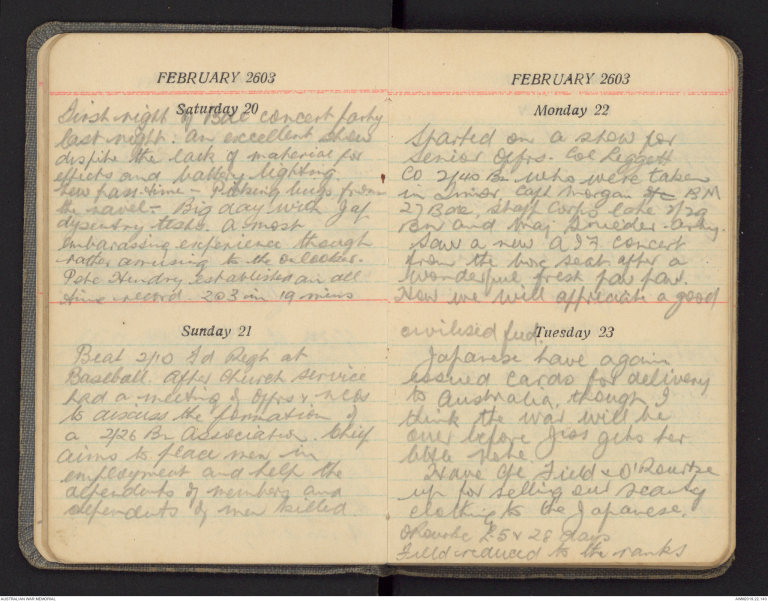 FEBRUARY 2603
Saturday 20
First night of Bde concert party
last night. An excellent show
dispite the lack of material for
effects and battery lighting.
New pass-time - Picking bugs from
the navel - Big day with Jap
dysentry tests. A most
embarassing experience though
rather amusing to the onlooker.
Pete Hendry established an all
time record. 203 in 19 mins
Sunday 21
Beat 2/10 Fd Regt at
Baseball. After Church Service
had a meeting of Offrs & NCOs
to discuss the formation of
a 2/26 Bn Association. Chief
aims to place men in
employment and help the
dependents of members and
dependents of men killed
FEBRUARY 2603
Monday 22
Started on a stew for
Senior Offrs. Col Leggatt
CO 2/40 Bn who were taken
in Timor, Capt Morgan BM
27 Bde, Staff Corps late 2/29
Bn and Maj
Saw a new AIF concert
from the box seat after a
wonderful fresh paw paw.
Now we will appreciate a good
civilised feed.
Tuesday 23
Japanese have again
issued cards for delivery
to Australia, though I
think the war will be
over before Jess gets her
little note
Have Cpl Field & O'Rourke
up for selling our scanty
clothing to the Japanese.
O'Rourke £5 & 28 days
Field reduced to the ranks
AUSTRALIAN WAR MEMORIAL